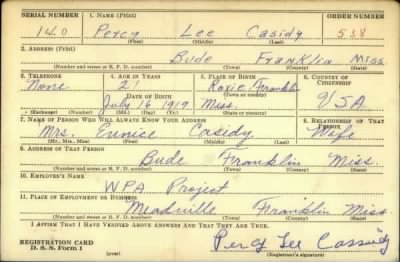 SERIAL NUMBER 1. NAME (Print) ORDER NUMBER
140 Percy Lee Casidy 538
(First) (Middle) (Last)
2. ADDRESS (Print)
Bude Franklin Miss.
(Number and street or R. F. D. number) (Town) (County) (State)
3. TELEPHONE 4. AGE IN YEARS 5. PLACE OF BIRTH 6. COUNTRY OF CITIZENSHIP
None 21 Roxie, Franklin
DATE OF BIRTH (Town or county)
July 16 1919 Miss. USA
(Exchange) (Number) (Mo.) (Day) (Yr.) (State or country)
7. NAME OF PERSON WHO WILL ALWAYS KNOW YOUR ADDRESS 8. RELATIONSHIP OF THAT PERSON
Mrs. Eunice Casidy Wife
(Mr., Mrs., Miss) (First) (Middle) (Last)
9. ADDRESS OF THAT PERSON
Bude Franklin Miss.
(Number and street or R. F. D. number) (Town) (County) (State)
10. EMPLOYER'S NAME
WPA Project
11. PLACE OF EMPLOYMENT OR BUSINESS
Meadville Franklin Miss
(Number and street or R. F. D. number) (Town) (County) (State)
I AFFIRM THAT I HAVE VERIFIED ABOVE ANSWERS AND THAT THEY ARE TRUE.
REGISTRATION CARD
D. S. S. Form 1 Percy Lee Cassidy
(Registrant's signature)